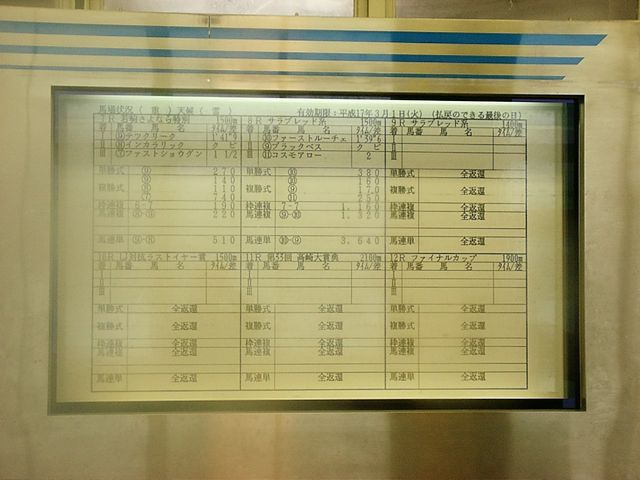 馬場状況 ( 重 ) 天候 ( 雪 ) 有効期限:平成17年3月1日(火) (払戻のできる最後の日)
7R 月崎さよなら特別 1500m 8R サラブレッド系 1500m 9R サラブレッド系
着 馬番 馬 名 タイム/差 着 馬番 馬 名 タイム/差 着 馬番 馬 名 タイム/差
Ⅰ ⑨テツクリーク 1'41"9 Ⅰ ⑩ファーストルーチェ 1'39"6 Ⅰ
Ⅱ ⑧インカラリック クビ Ⅱ ⑨ブラックベス クビ Ⅱ
Ⅲ ⑦ファストショウグン 1 1/2 Ⅲ ⑪コスモアロー 2 Ⅲ
単勝式 ⑨ 270 単勝式 ⑩ 380 単勝式 全返還
⑨ 140 ⑩ 160
複勝式 ⑧ 110 複勝式 ⑨ 170 複勝式 全返還
⑦ 740 ⑪ 250
枠連複 6-7 190 枠連複 7-7 1.160 枠連複 全返還
馬連複 ⑧-⑨ 220 馬連複 ⑨-⑩ 1.320 馬連複 全返還
馬連単 ⑨-⑧ 510 馬連単 ⑩-⑨ 3.640 馬連単 全返還
10R 対抗ラストイヤー賞 1500m 11R 第53回 高崎大賞典 2100m 12R ファイナルカップ 1900m
着 馬番 馬 名 タイム/差 着 馬番 馬 名 タイム/差 着 馬番 馬 名 タイム/差
Ⅰ Ⅰ Ⅰ
Ⅱ Ⅱ Ⅱ
Ⅲ Ⅲ Ⅲ
単勝式 全返還 単勝式 全返還 単勝式 全返還
複勝式 全返還 複勝式 全返還 複勝式 全返還
枠連複 全返還 枠連複 全返還 枠連複 全返還
馬連複 全返還 馬連複 全返還 馬連複 全返還
馬連単 全返還 馬連単 全返還 馬連単 全返還